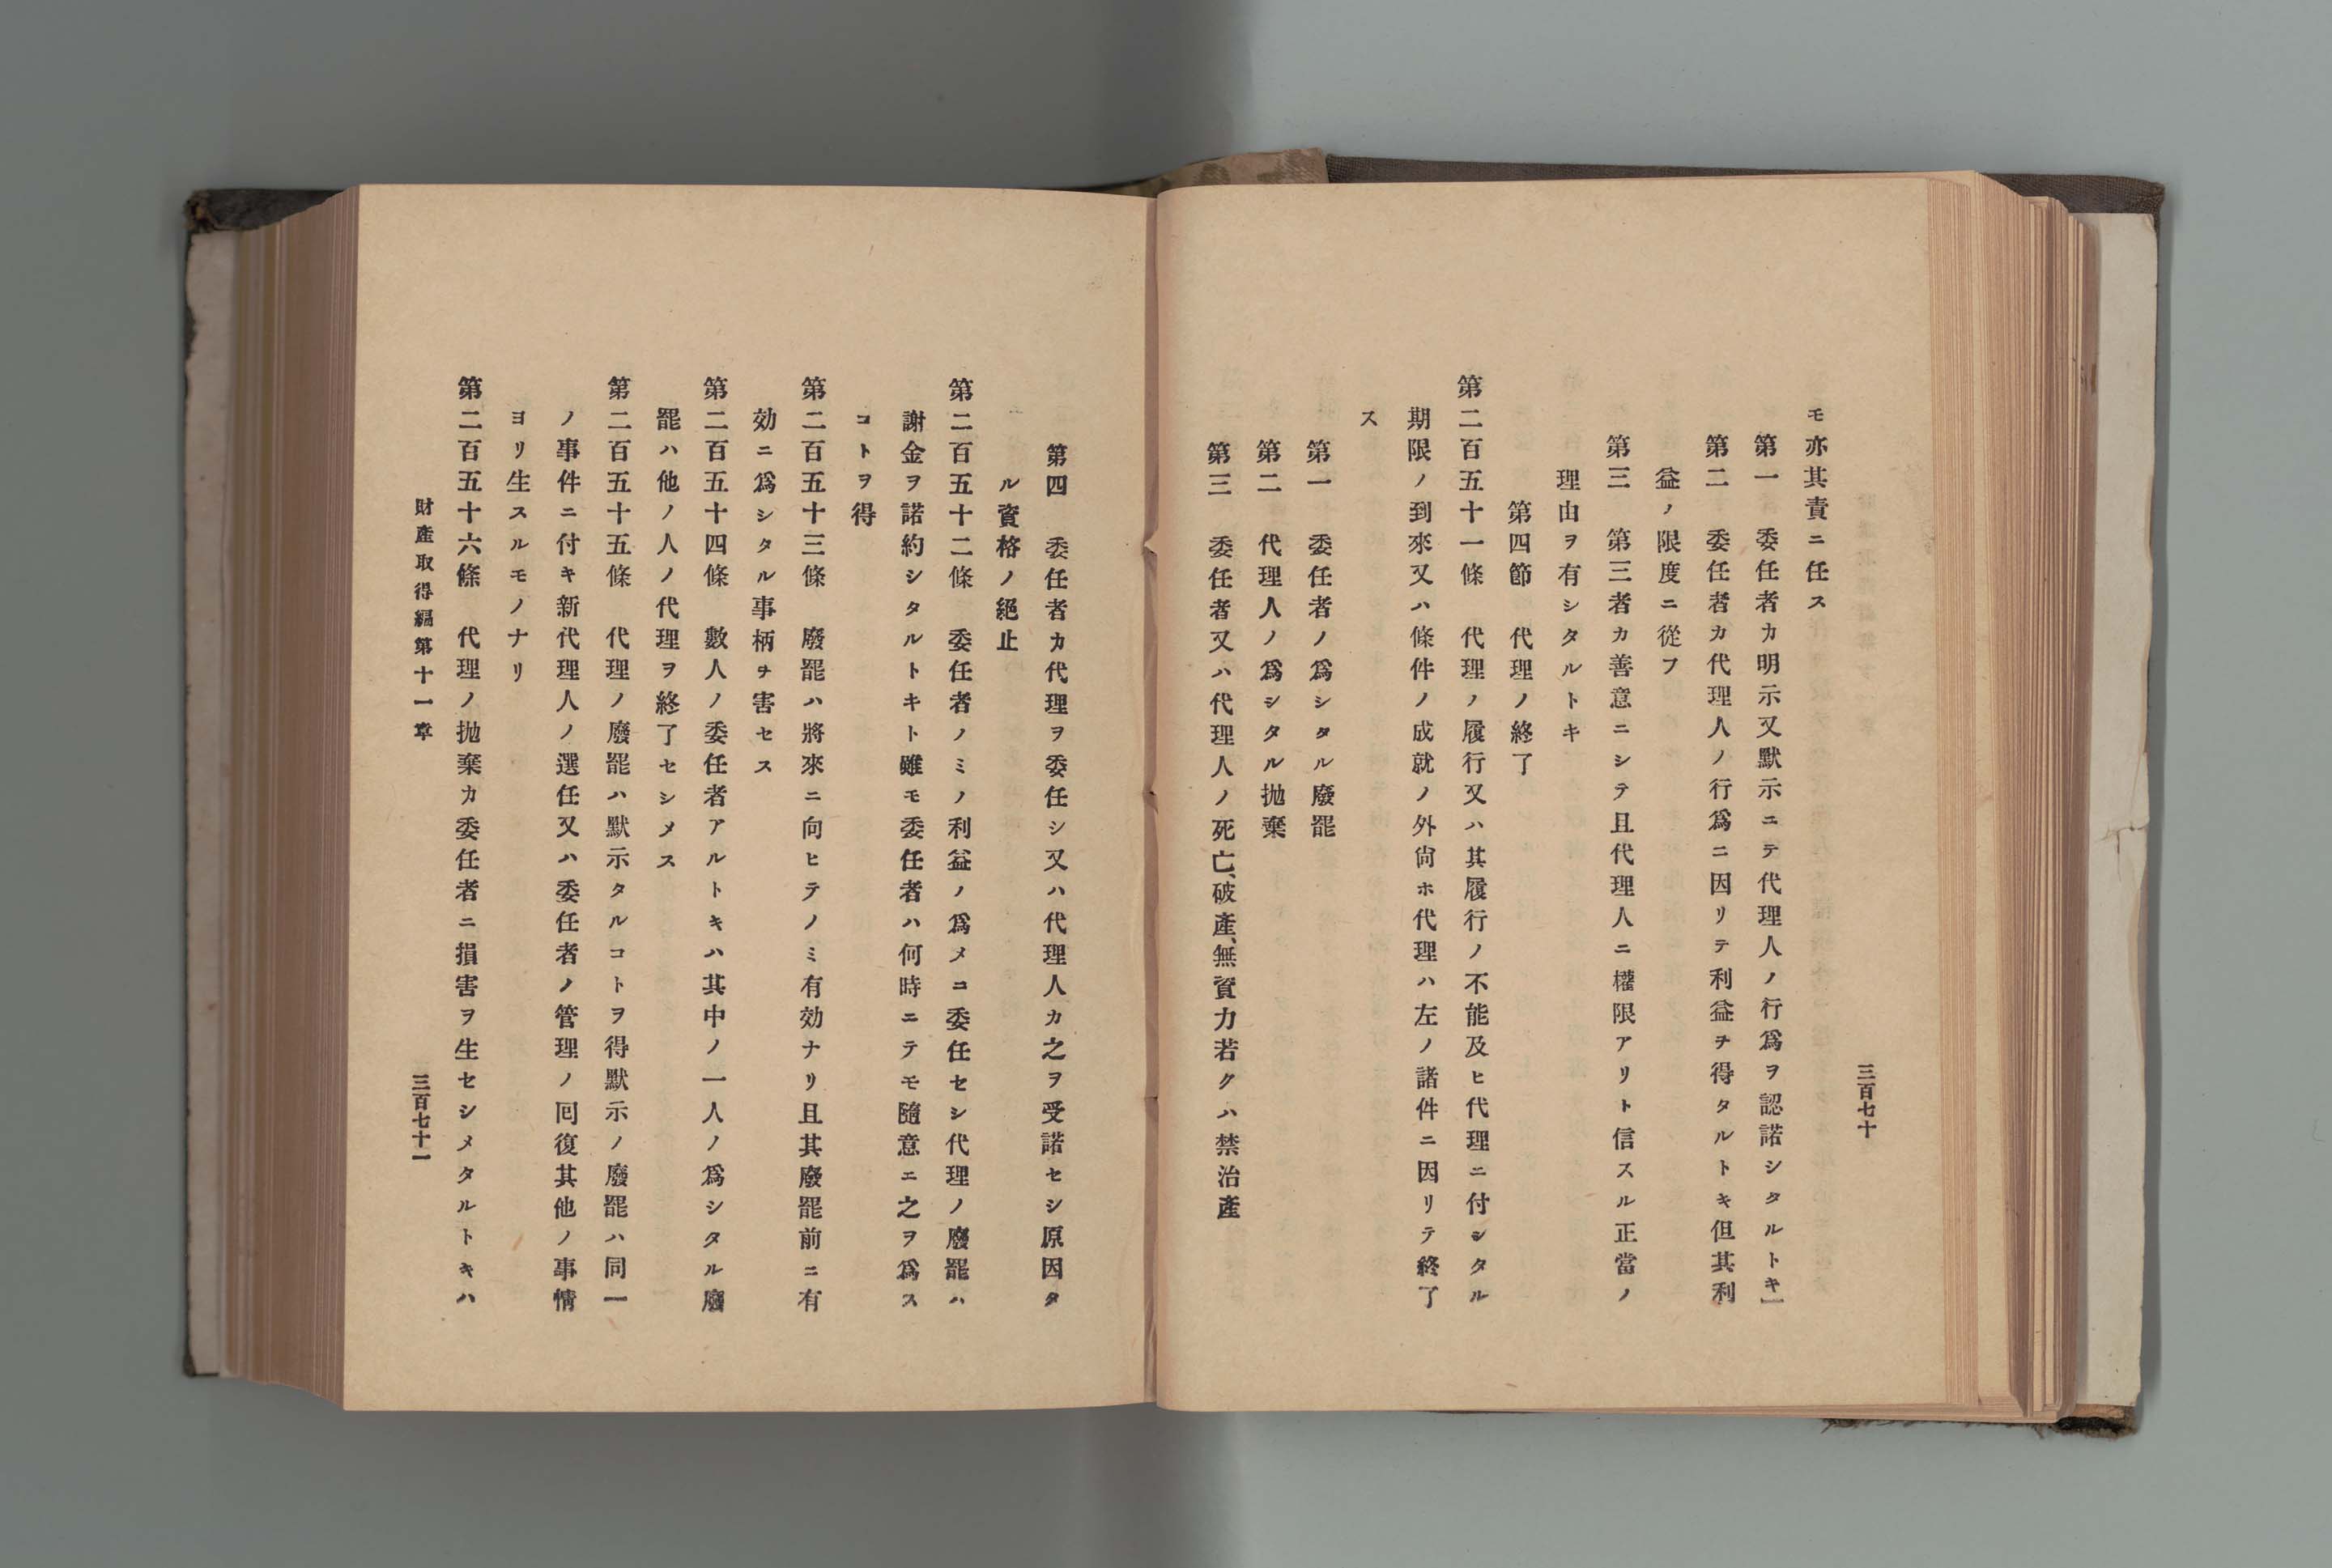 三百七十
モ亦其責ニ任ス
第一　委任者カ明示又默示ニテ代理人ノ行爲ヲ認諾シタルトキ」
第二　委任者カ代理人ノ行爲ニ因リテ利益ヲ得タルトキ但其利
益ノ限度ニ從フ
第三　第三者カ善意ニシテ且代理人ニ權限アリト信スル正當ノ
理由ヲ有シタルトキ
第四節　代理ノ終了
第二百五十一條　代理ノ履行又ハ其履行ノ不能及ヒ代理ニ付シタル
期限ノ到來又ハ條件ノ成就ノ外尙ホ代理ハ左ノ諸件ニ因リテ終了
ス
第一　委任者ノ爲シタル廢罷
第二　代理人ノ爲シタル抛棄
第三　委任者又ハ代理人ノ死亡、破產、無資力若クハ禁治產
第四　委任者カ代理ヲ委任シ又ハ代理人カ之ヲ受諾セシ原因タ
ル資格ノ絕止
第二百五十二條　委任者ノミノ利益ノ爲メコ委任セシ代理ノ廢罷ハ
謝金ヲ諾約シタルトキト雖モ委任者ハ何時ニテモ隨意ニ之ヲ爲ス
コトヲ得
第二百五十三條　廢罷ハ將來ニ向ヒテノミ有効ナリ且其廢罷前ニ有
効ニ爲シタル事柄ヲ害セス
第二百五十四條　數人ノ委任者アルトキハ其中ノ一人ノ爲シタル廢
罷ハ他ノ人ノ代理ヲ終了セシメス
第二百五十五條　代理ノ廢罷ハ默示タルコトヲ得默示ノ廢罷ハ同一
ノ事件ニ付キ新代理人ノ選任又ハ委任者ノ管理ノ囘復其他ノ事情
ヨリ生スルモノナリ
第二百五十六條　代理ノ抛棄カ委任者ニ損害ヲ生セシメタルトキハ
財產取得編第十一章
三百七十一